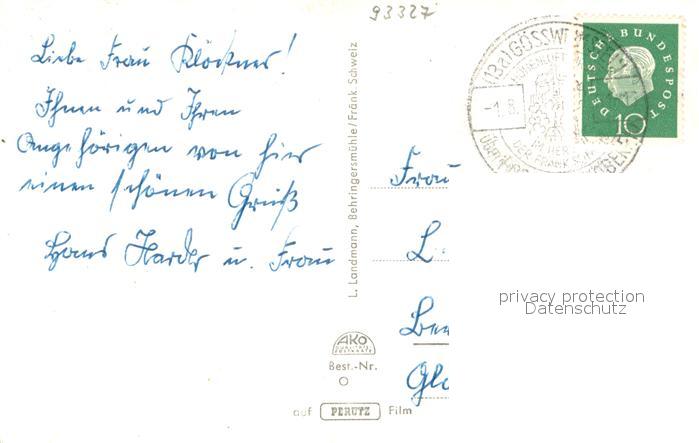 93327
Liebe Frau Klöckner!
Ihnen und Ihren
Angehörigen von hier
einen schönen Gruß
Hans Harder u. Frau
L. Landmann, Behringersmühle/Fränk Schweiz
AKO
Best.-Nr.
O
auf PERUTZ Film
(13a) GÖSSW
LUFT
-1.8.
IM HER
DER FRÄNK. SCH
über
DEUTSCHE BUNDESPOST
10
Frau
L.
Be
Gl
privacy protection
Datenschutz